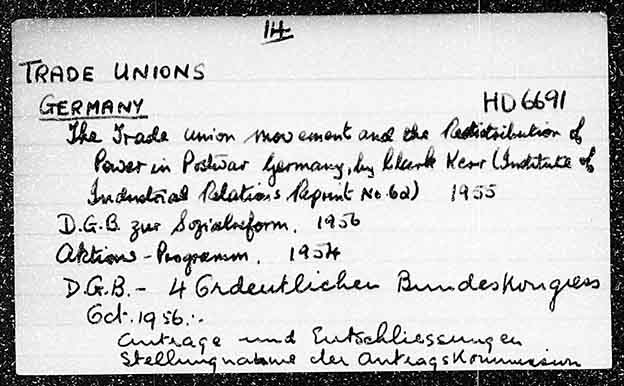 14
TRADE UNIONS
GERMANY HD6691
The Trade union movement and the Redistribution of
Power in Postwar Germany, by Clark Kerr (Institute of
Industrial Relations Reprint No. 62) 1955
D.G.B. zur Sozialreform. 1956
Aktions-Programm. 1954
D.G.B. - 4 Ordentlichen Bundeskongress
Oct. 1956.:.
Antrage und Entschliessungen
Stellungnahme der Antragskommission